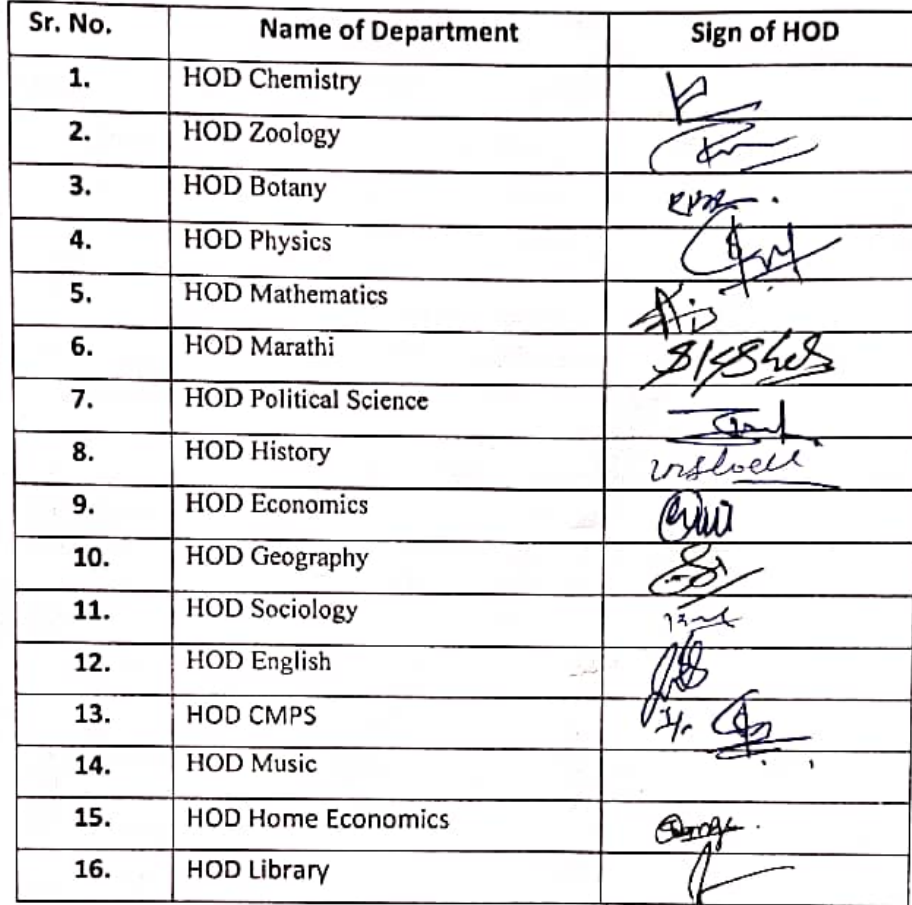 Sr. No. Name of Department Sign of HOD
1. HOD Chemistry
2. HOD Zoology
3. HOD Botany
4. HOD Physics
5. HOD Mathematics
6. HOD Marathi
7. HOD Political Science
8. HOD History
9. HOD Economics
10. HOD Geography
11. HOD Sociology
12. HOD English
13. HOD CMPS
14. HOD Music
15. HOD Home Economics
16. HOD Library